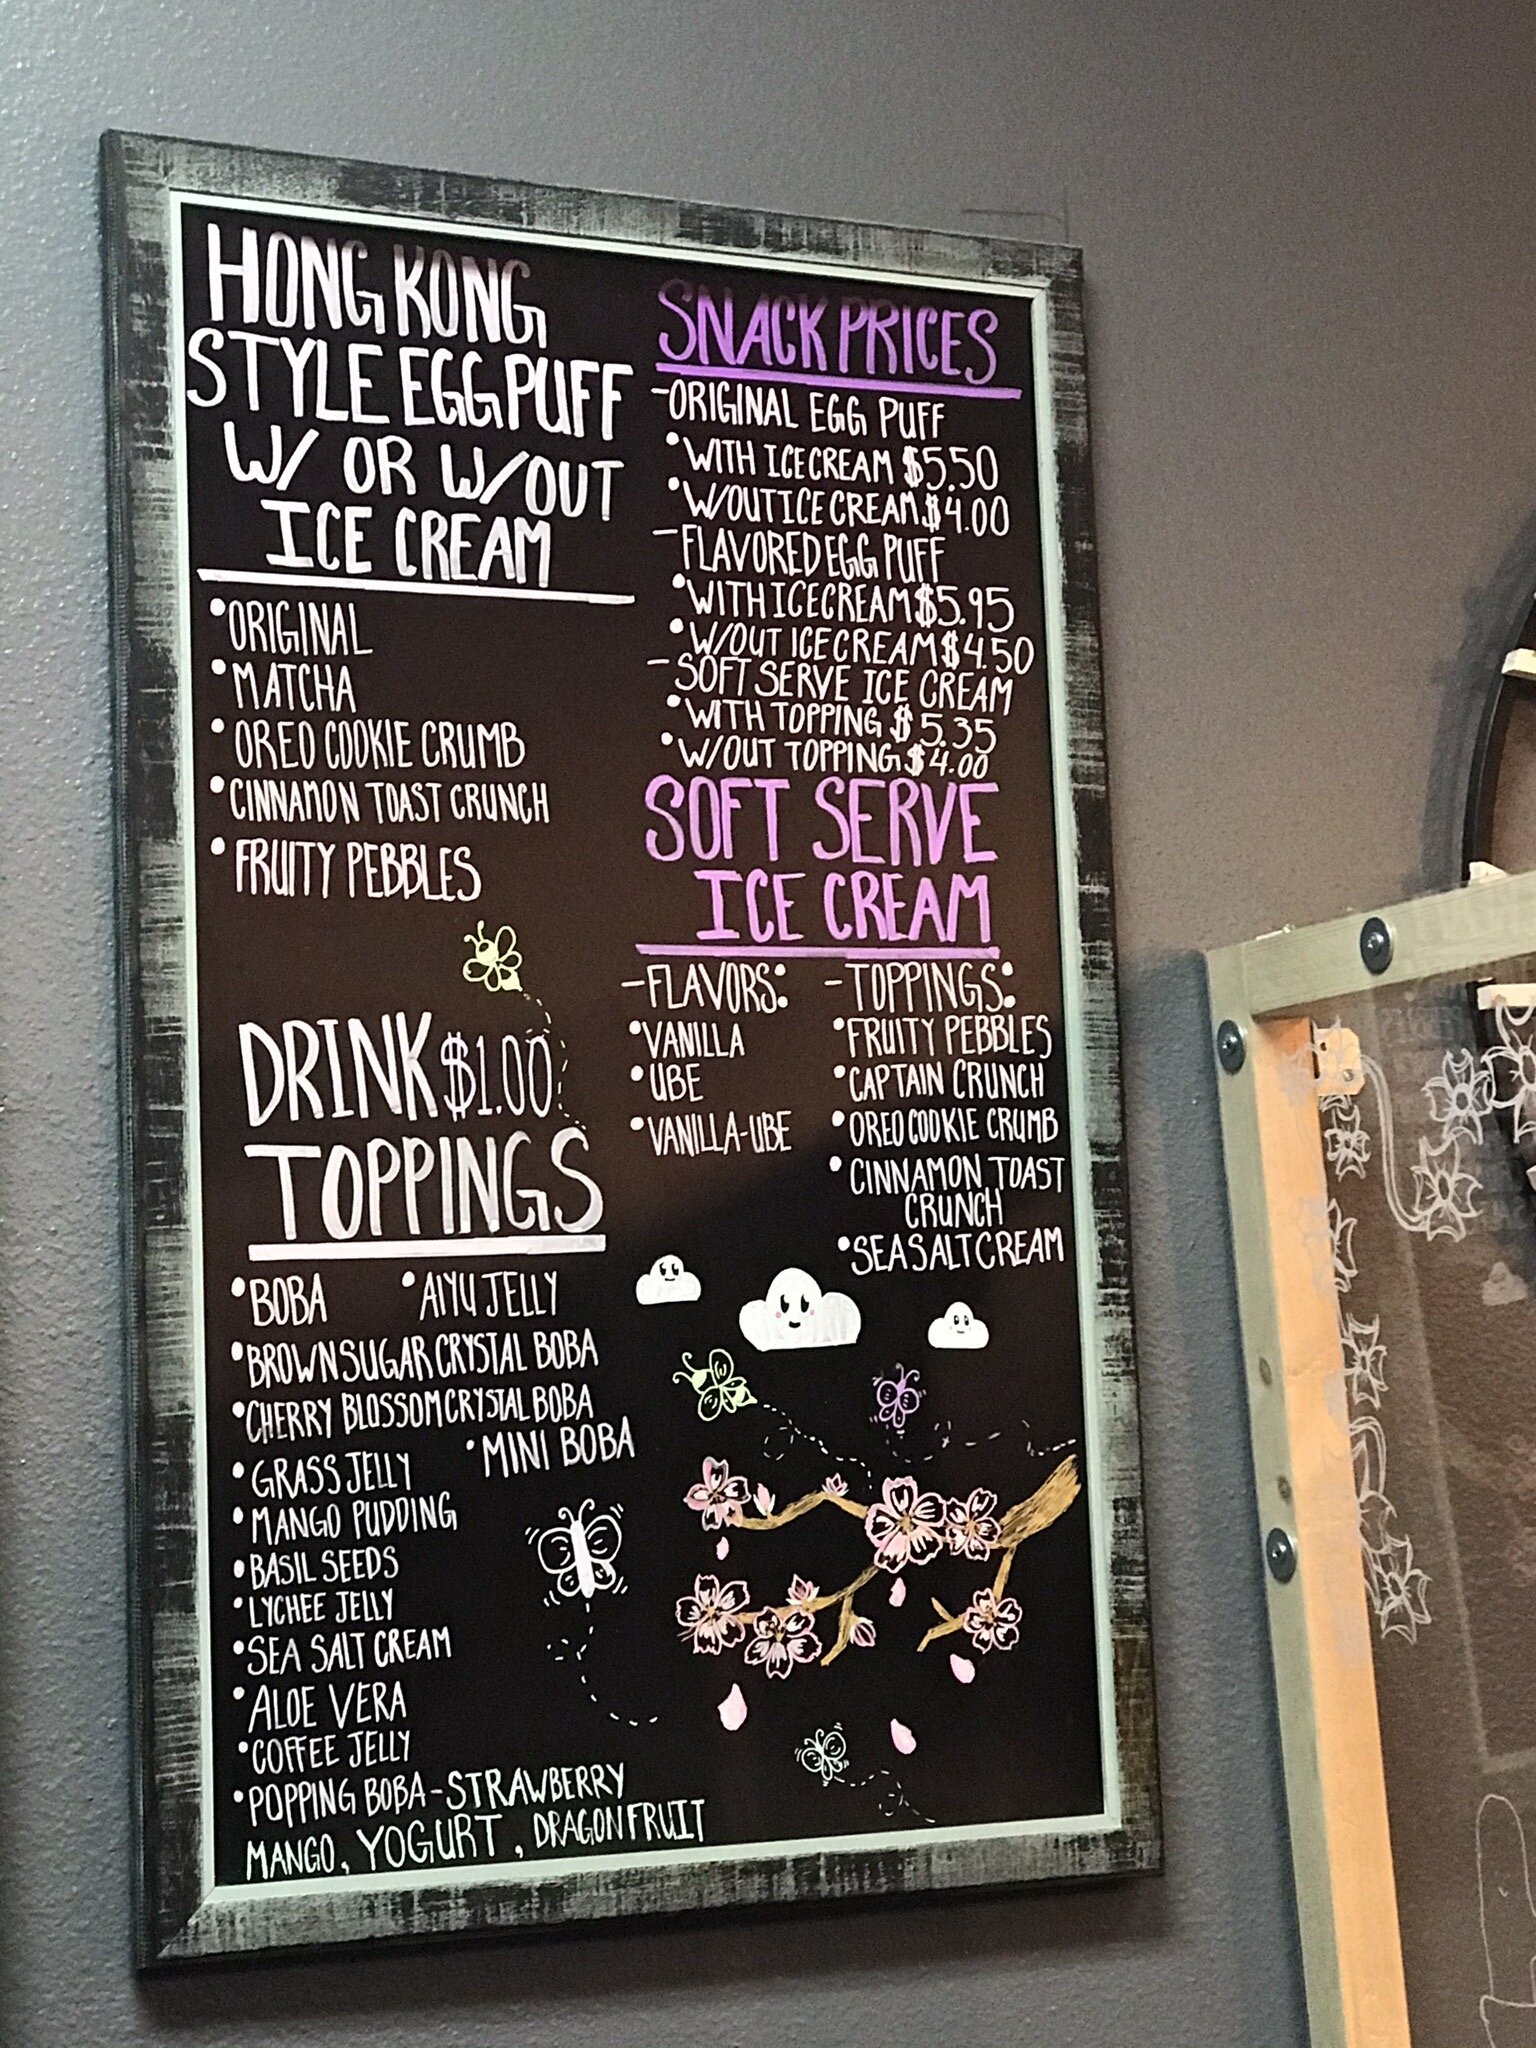 HONG KONG
STYLE EGG PUFF
W/ OR W/OUT
ICE CREAM
•ORIGINAL
•MATCHA
•OREO COOKIE CRUMB
•CINNAMON TOAST CRUNCH
•FRUITY PEBBLES
DRINK $1.00
TOPPINGS
•BOBA •AIYU JELLY
•BROWN SUGAR CRYSTAL BOBA
•CHERRY BLOSSOM CRYSTAL BOBA
•GRASS JELLY •MINI BOBA
•MANGO PUDDING
•BASIL SEEDS
•LYCHEE JELLY
•SEA SALT CREAM
•ALOE VERA
•COFFEE JELLY
•POPPING BOBA-STRAWBERRY
MANGO, YOGURT, DRAGONFRUIT
SNACK PRICES
-ORIGINAL EGG PUFF
•WITH ICE CREAM $5.50
•W/OUT ICE CREAM $4.00
-FLAVORED EGG PUFF
•WITH ICE CREAM $5.95
•W/OUT ICE CREAM $4.50
-SOFT SERVE ICE CREAM
•WITH TOPPING $5.35
•W/OUT TOPPING $4.00
SOFT SERVE
ICE CREAM
-FLAVORS:
•VANILLA
•UBE
•VANILLA-UBE
-TOPPINGS:
•FRUITY PEBBLES
•CAPTAIN CRUNCH
•OREO COOKIE CRUMB
•CINNAMON TOAST
CRUNCH
•SEA SALT CREAM